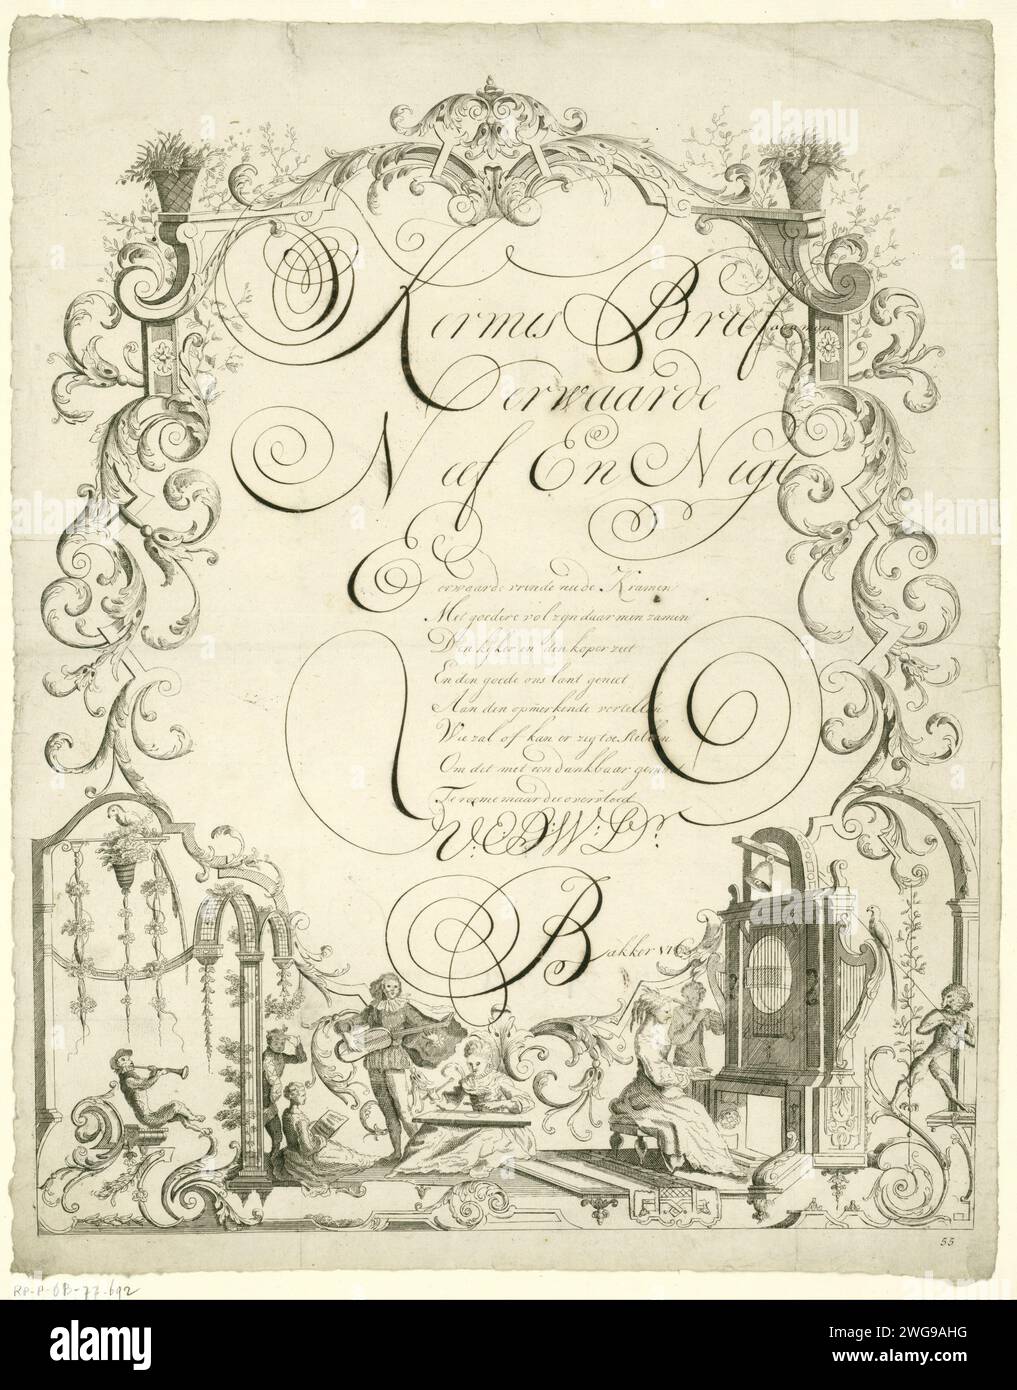 Kermis Brief
Eerwaarde
Neef En Nigt
Eerwaarde vrinde nu de Kramen
Met goedere vol zyn daar men zamen
Den kyker en den koper ziet
En den goede ons lant geniet
Aan den opmerkende vertellen
Wie zal of kan er zig toe stellen
Om dit met een dankbaar gemoet
Te roeme maar dee overvloed
Bakker
55
RP-P-OB-77.692
alamy
Image ID: 2WG9AHG
www.alamy.com